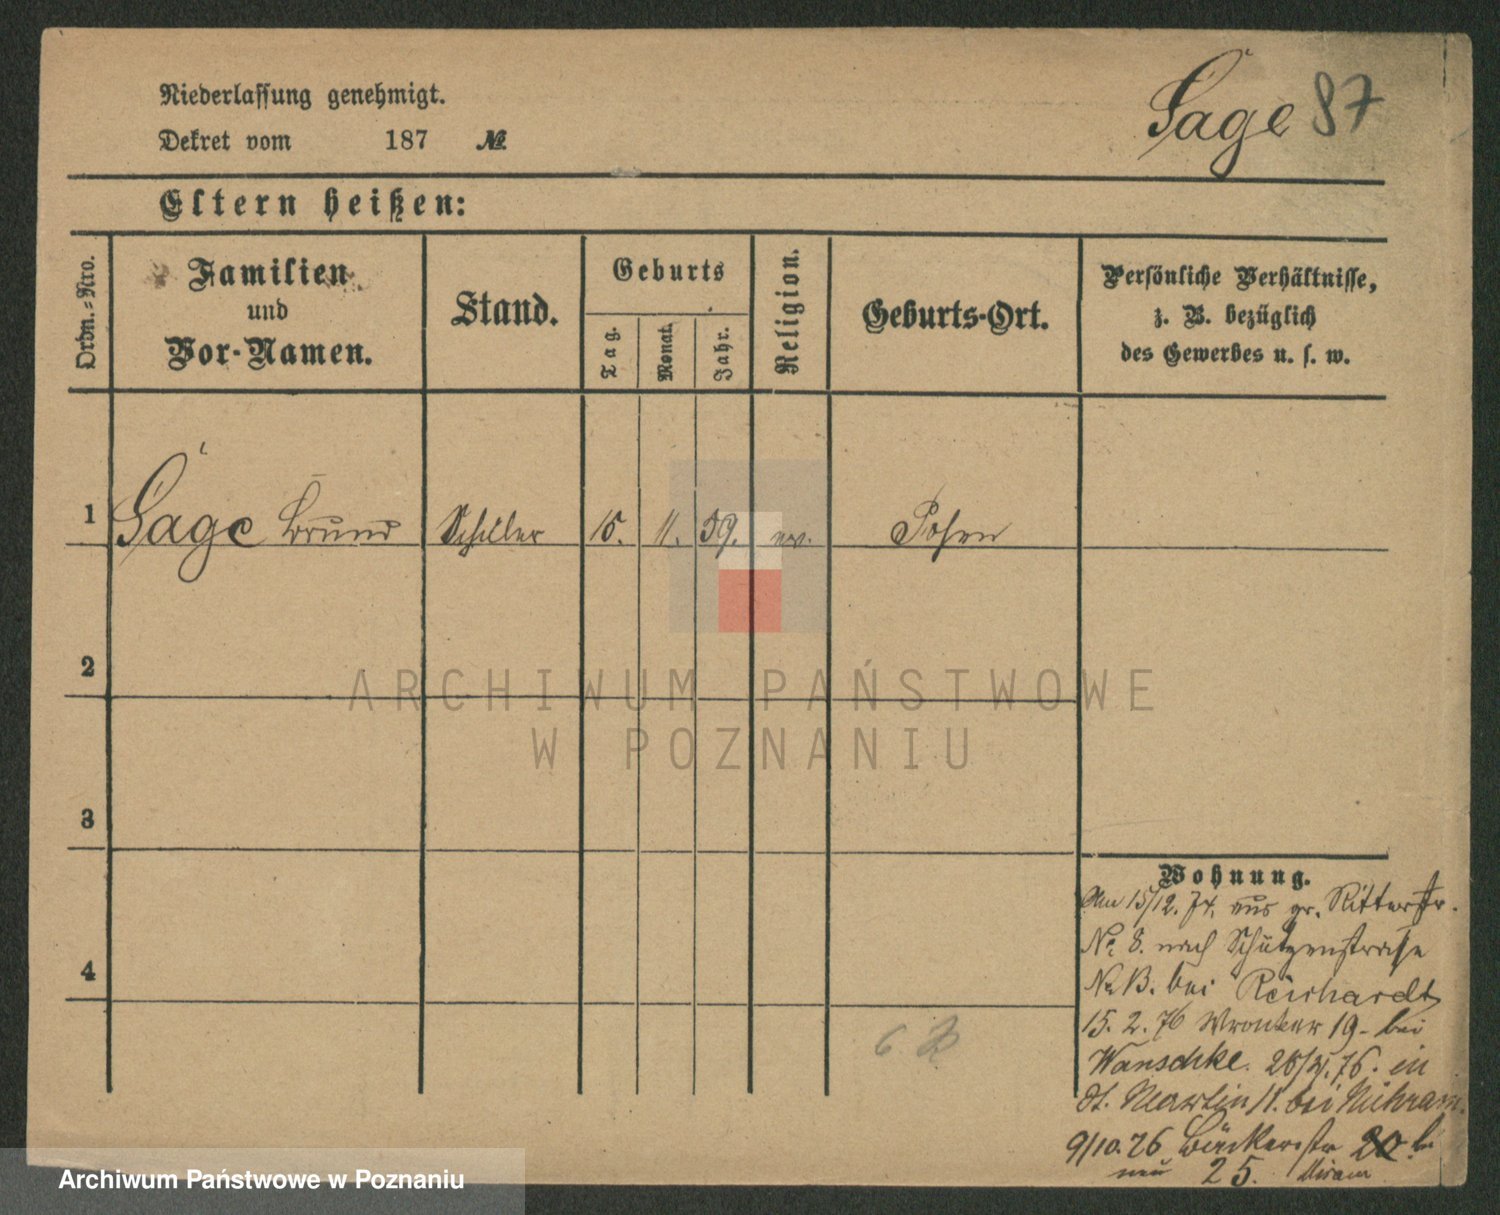 Niederlassung genehmigt.
Sage 87
Dekret vom 187 №
Eltern heißen:
Ordn.-Nro.
Familien
und
Vor-Namen.
Stand.
Geburts
Tag.
Monat.
Jahr.
Religion.
Geburts-Ort.
Persönliche Verhältnisse,
z. B. bezüglich
des Gewerbes u. s. w.
1 Sage Bruno Schüler 15. 11. 59. ev. Posen
2
ARCHIWUM PAŃSTWOWE
W POZNANIU
3
4
Wohnung.
Am 15/12. 74. aus gr. Ritterstr.
No 8. nach Schützenstraße
No bei Reichardt
15. 2. 76 Wronker 19 - bei
Wanschke. 76. in
St. Martin 11. bei
9/10. 76 Bäckerstr 20 b.
neu 25. Miram
6
Archiwum Państwowe w Poznaniu